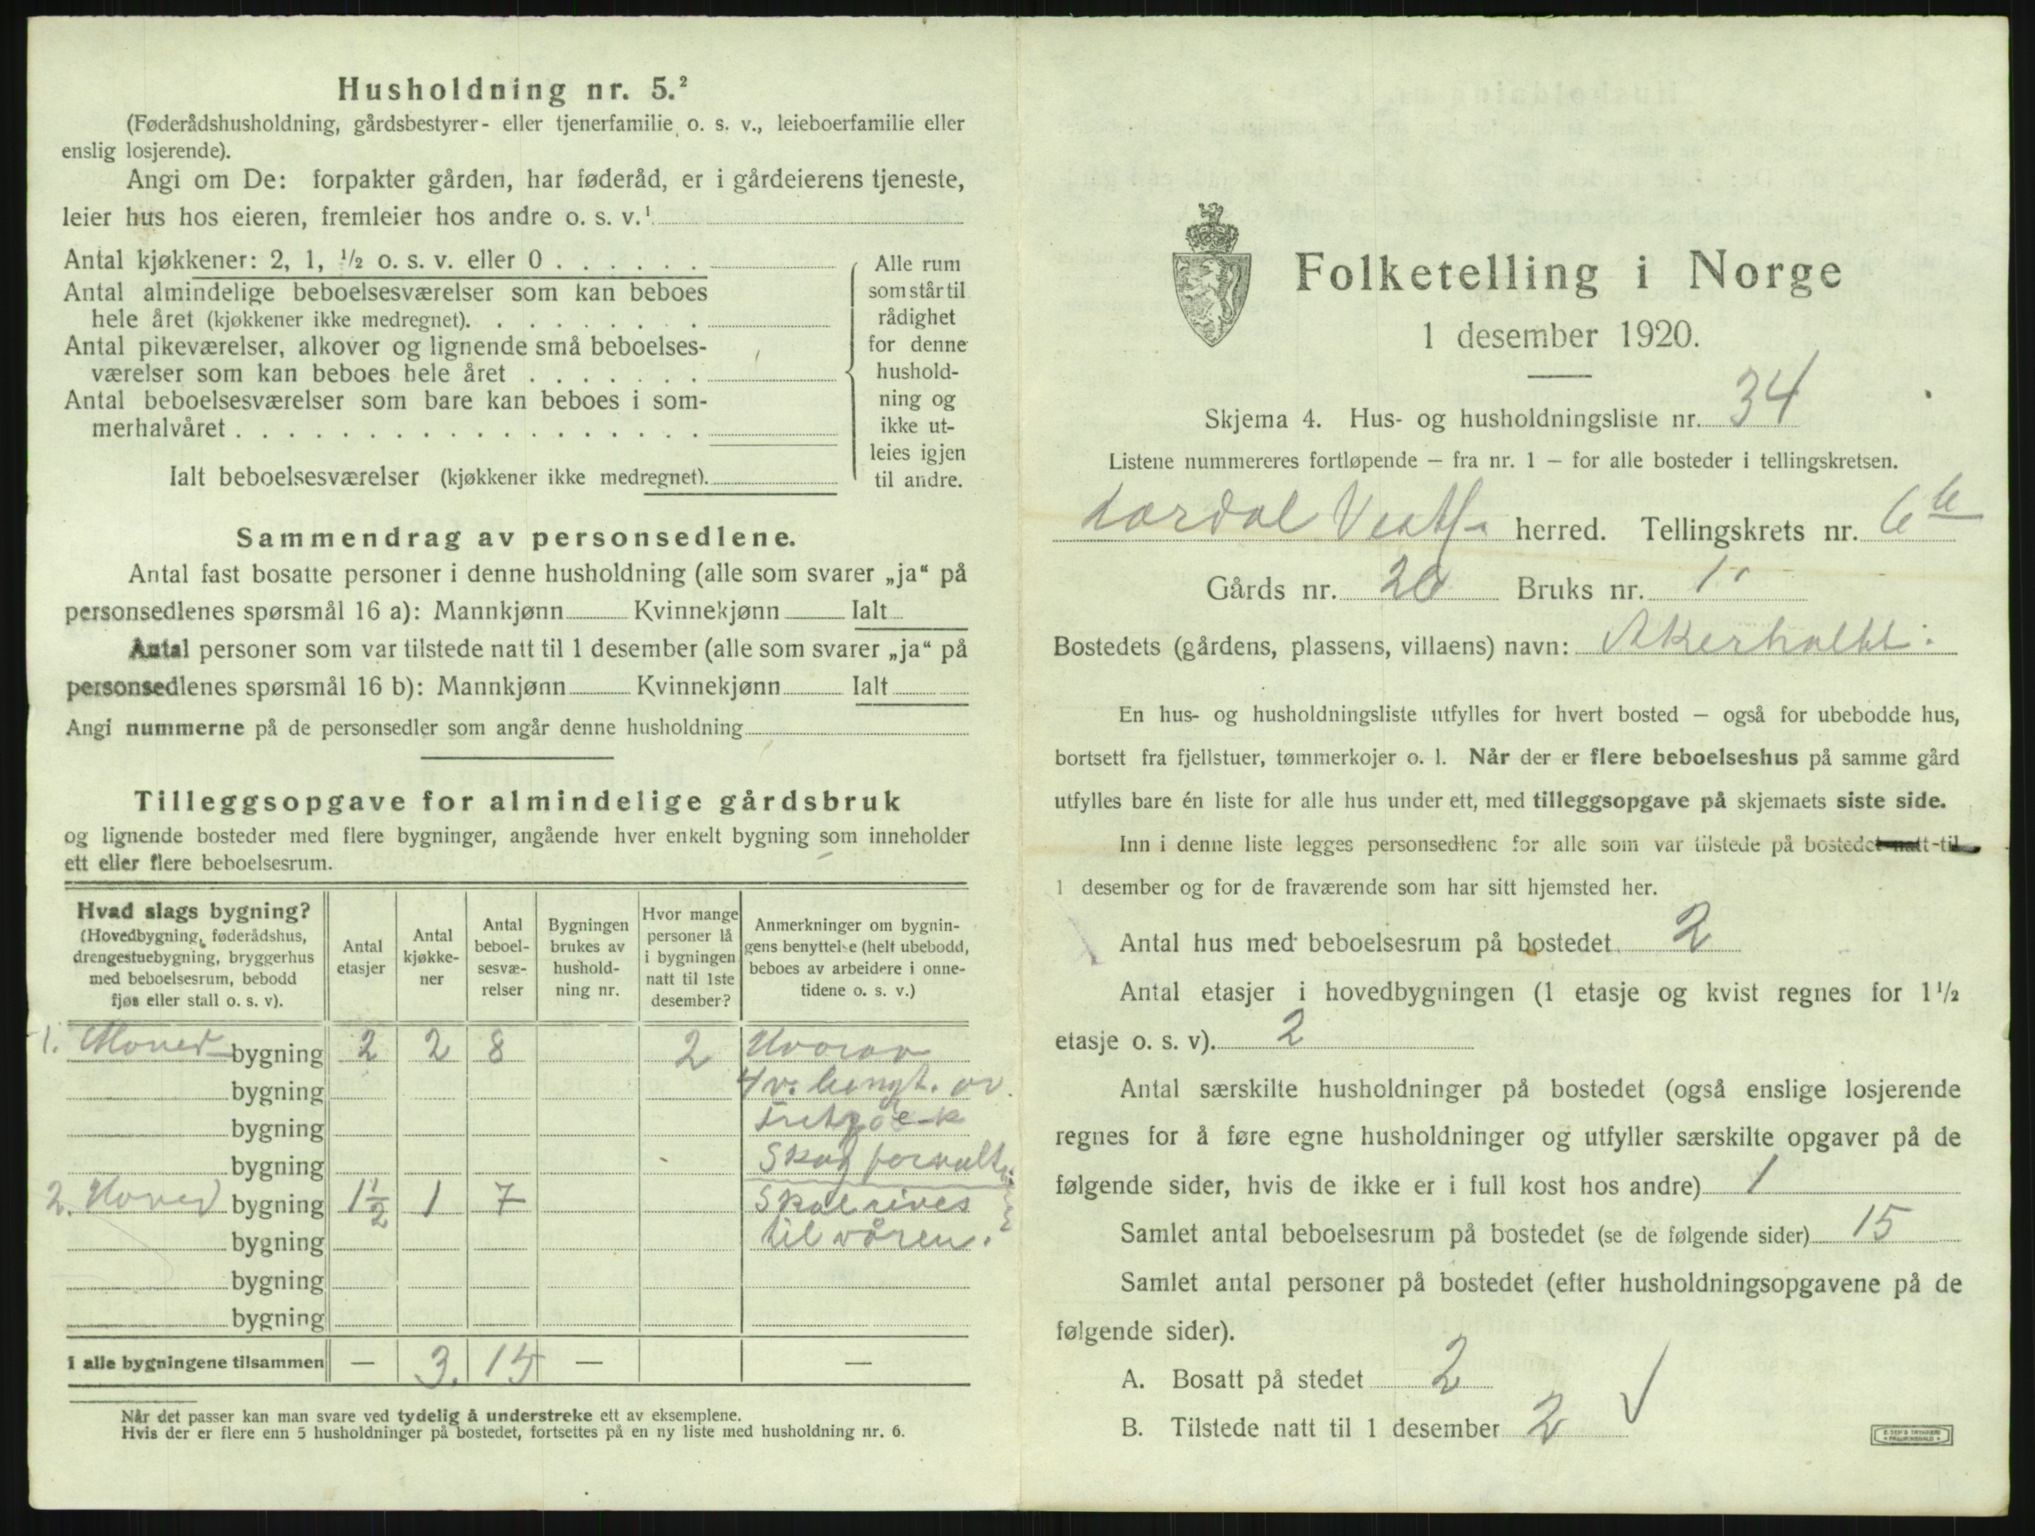 Husholdning nr. 5.²
(Føderådshusholdning, gårdsbestyrer- eller tjenerfamilie o. s. v., leieboerfamilie eller
enslig losjerende).
Angi om De: forpakter gården, har føderåd, er i gårdeierens tjeneste,
leier hus hos eieren, fremleier hos andre o. s. v.¹
Antal kjøkkener: 2, 1, ½ o. s. v. eller 0 . . . . . .
Antal almindelige beboelsesværelser som kan beboes
hele året (kjøkkener ikke medregnet). . . . . . . . .
Antal pikeværelser, alkover og lignende små beboelses-
værelser som kan beboes hele året . . . . . . .
Antal beboelsesværelser som bare kan beboes i som-
merhalvåret . . . . . . . . . . . . . . . . . .
Ialt beboelsesværelser (kjøkkener ikke medregnet).
Alle rum
som står til
rådighet
for denne
hushold-
ning og
ikke ut-
leies igjen
til andre.
Sammendrag av personsedlene.
Antal fast bosatte personer i denne husholdning (alle som svarer „ja“ på
personsedlenes spørsmål 16 a): Mannkjønn Kvinnekjønn Ialt
Antal personer som var tilstede natt til 1 desember (alle som svarer „ja“ på
personsedlenes spørsmål 16 b): Mannkjønn Kvinnekjønn Ialt
Angi nummerne på de personsedler som angår denne husholdning
Tilleggsopgave for almindelige gårdsbruk
og lignende bosteder med flere bygninger, angående hver enkelt bygning som inneholder
ett eller flere beboelsesrum.
Hvad slags bygning?
(Hovedbygning, føderådshus,
drengestuebygning, bryggerhus
med beboelsesrum, bebodd
fjøs eller stall o. s. v).
Antal
etasjer
Antal
kjøkke-
ner
Antal
beboel-
sesvæ-
relser
Bygningen
brukes av
hushold-
ning nr.
Hvor mange
personer lå
i bygningen
natt til 1ste
desember?
Anmerkninger om bygnin-
gens benyttelse (helt ubebodd,
beboes av arbeidere i onne-
tidene o. s. v.)
1. Hoved bygning 2 2 8 2 Hvorav
bygning 4 v. av
bygning
bygning Skog forvalt.
2. Hoved bygning 1½ 1 7 Skal rives
bygning til våren.
bygning
bygning
I alle bygningene tilsammen — 3. 15 — —
Når det passer kan man svare ved tydelig å understreke ett av eksemplene.
Hvis der er flere enn 5 husholdninger på bostedet, fortsettes på en ny liste med husholdning nr. 6.
Folketelling i Norge
1 desember 1920.
Skjema 4. Hus- og husholdningsliste nr. 34
Listene nummereres fortløpende – fra nr. 1 – for alle bosteder i tellingskretsen.
Lardal Vestf. herred. Tellingskrets nr. 6b
Gårds nr. 20 Bruks nr. 1
Bostedets (gårdens, plassens, villaens) navn: Akerholdt
En hus- og husholdningsliste utfylles for hvert bosted – også for ubebodde hus,
bortsett fra fjellstuer, tømmerkojer o. l. Når der er flere beboelseshus på samme gård
utfylles bare én liste for alle hus under ett, med tilleggsopgave på skjemaets siste side.
Inn i denne liste legges personsedlene for alle som var tilstede på bostedet natt til
1 desember og for de fraværende som har sitt hjemsted her.
Antal hus med beboelsesrum på bostedet 2
Antal etasjer i hovedbygningen (1 etasje og kvist regnes for 1½
etasje o. s. v). 2
Antal særskilte husholdninger på bostedet (også enslige losjerende
regnes for å føre egne husholdninger og utfyller særskilte opgaver på de
følgende sider, hvis de ikke er i full kost hos andre) 1
Samlet antal beboelsesrum på bostedet (se de følgende sider) 15
Samlet antal personer på bostedet (efter husholdningsopgavene på de
følgende sider).
A. Bosatt på stedet 2
B. Tilstede natt til 1 desember 2